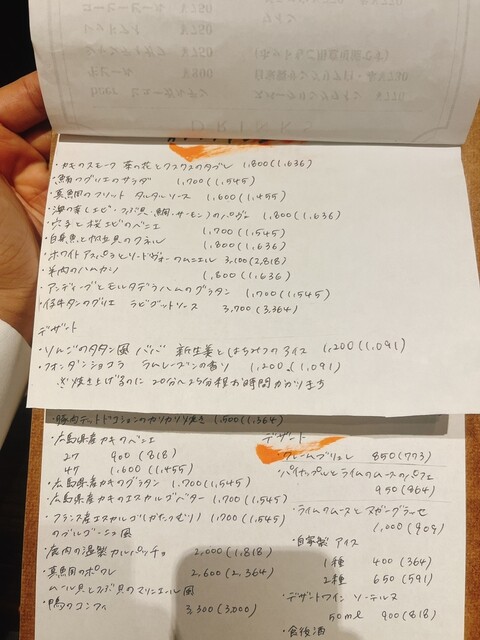 ・カキのスモーク 菜の花とクスクスのタブレ 1,800(1,636)
・鮪のグリエのサラダ 1,700(1,545)
・真鯛のフリット タルタルソース 1,600(1,455)
・海の幸(エビ・ツブ貝・鯛・サーモン)のパヴェ 1,800(1,636)
・穴子と桜エビのベニエ 1,700(1,545)
・白身魚と帆立貝のクネル 1,800(1,636)
・ホワイトアスパラとリードヴォームニエル 3,100(2,818)
・羊肉のハムカツ 1,800(1,636)
・アンディーブとモルタデラハムのグラタン 1,700(1,545)
・仔牛タンのグリエ ラビゴットソース 3,700(3,364)
デザート
・りんごのタタン風 ババ 新生姜とはちみつのアイス 1,200(1,091)
・フォンダンショコラ ラムレーズンの香り 1,200(1,091)
※焼き上げるのに20分〜25分程お時間かかります
カリカリ焼き 1,500(1,364)
・広島県産カキのベニエ
2ケ 900(818)
4ケ 1,600(1,455)
・広島県産カキのグラタン 1,700(1,545)
・広島県産カキのエスカルゴバター 1,700(1,545)
・フランス産エスカルゴ(かたつむり) 1,700(1,545)
のブルゴーニュ風
・鹿肉の湿製カルパッチョ 2,000(1,818)
・真鯛のポワレ 2,600(2,364)
ムール貝とツブ貝のマリニエール風
・鴨のコンフィ 3,300(3,000)
デザート
・クレームブリュレ 850(773)
・パイナップルとライムのムースのパフェ
950(864)
・ライムのムースとヌガーグラッセ
1,000(909)
・自家製アイス
1種 400(364)
2種 650(591)
・デザートワイン ソーテルヌ
50ml 900(818)
・食後酒